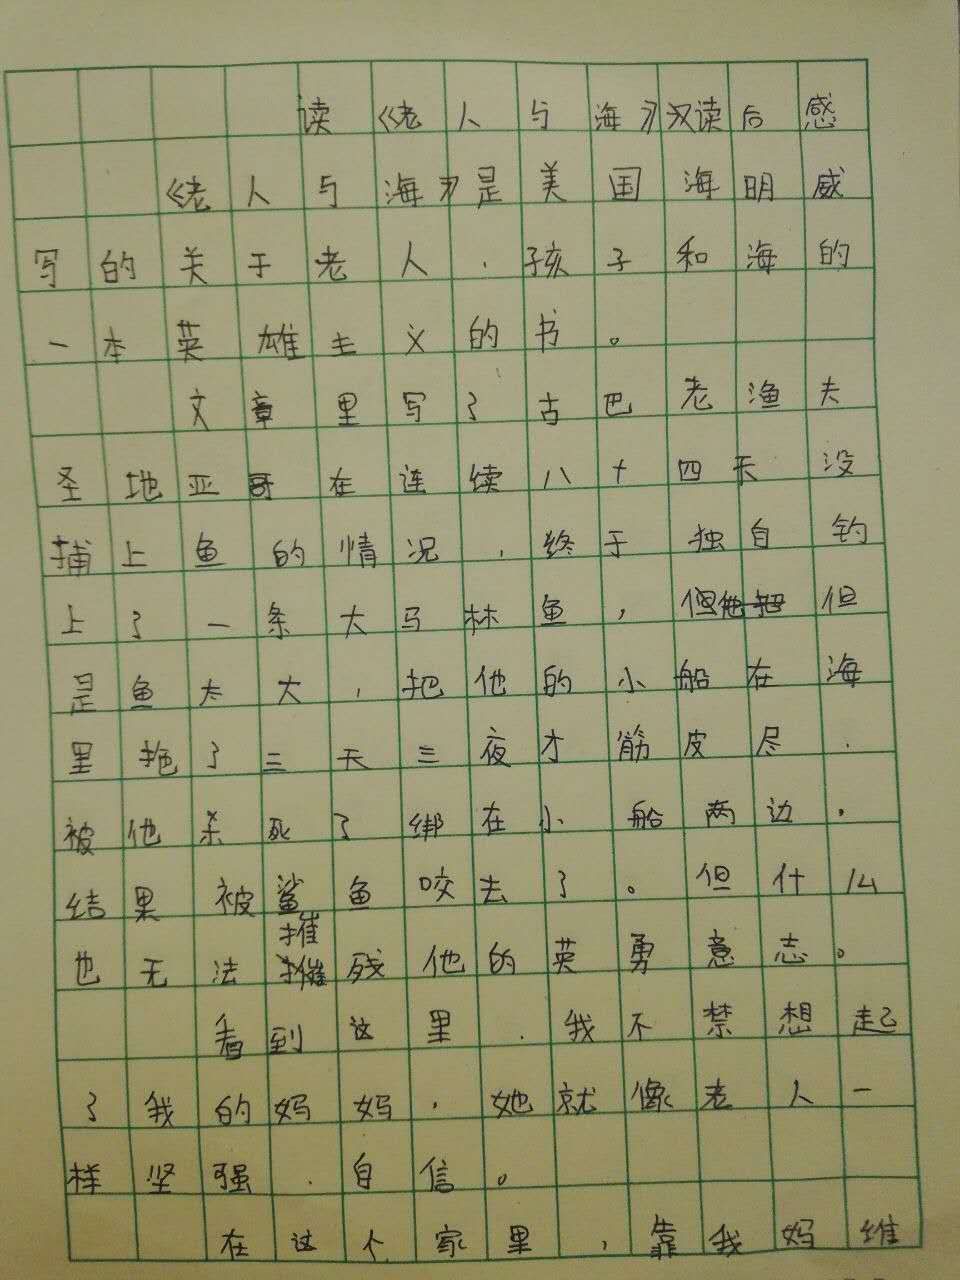 读《老人与海》汉读后感
《老人与海》是美国海明威
写的关于老人、孩子和海的
一本英雄主义的书。
文章里写了古巴老渔夫
圣地亚哥在连续八十四天没
捕上鱼的情况,终于独自钓
上了一条大马林鱼,但
是鱼太大,把他的小船在海
里拖了三天三夜才筋皮尽,
被他杀死了绑在小船两边。
结果被鲨鱼咬去了。但什么
也无法摧残他的英勇意志。
看到这里,我不禁想起
了我的妈妈,她就像老人一
样坚强、自信。
在这个家里,靠我妈维